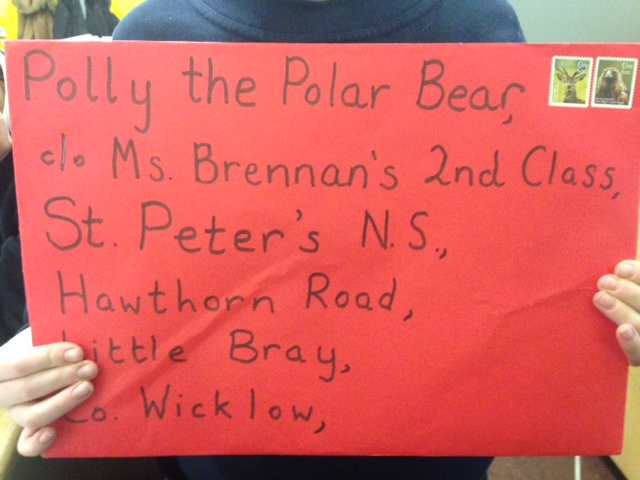 Polly the Polar Bear,
c/o Ms. Brennan's 2nd Class,
St. Peter's N.S.,
Hawthorn Road,
Little Bray,
Co. Wicklow,